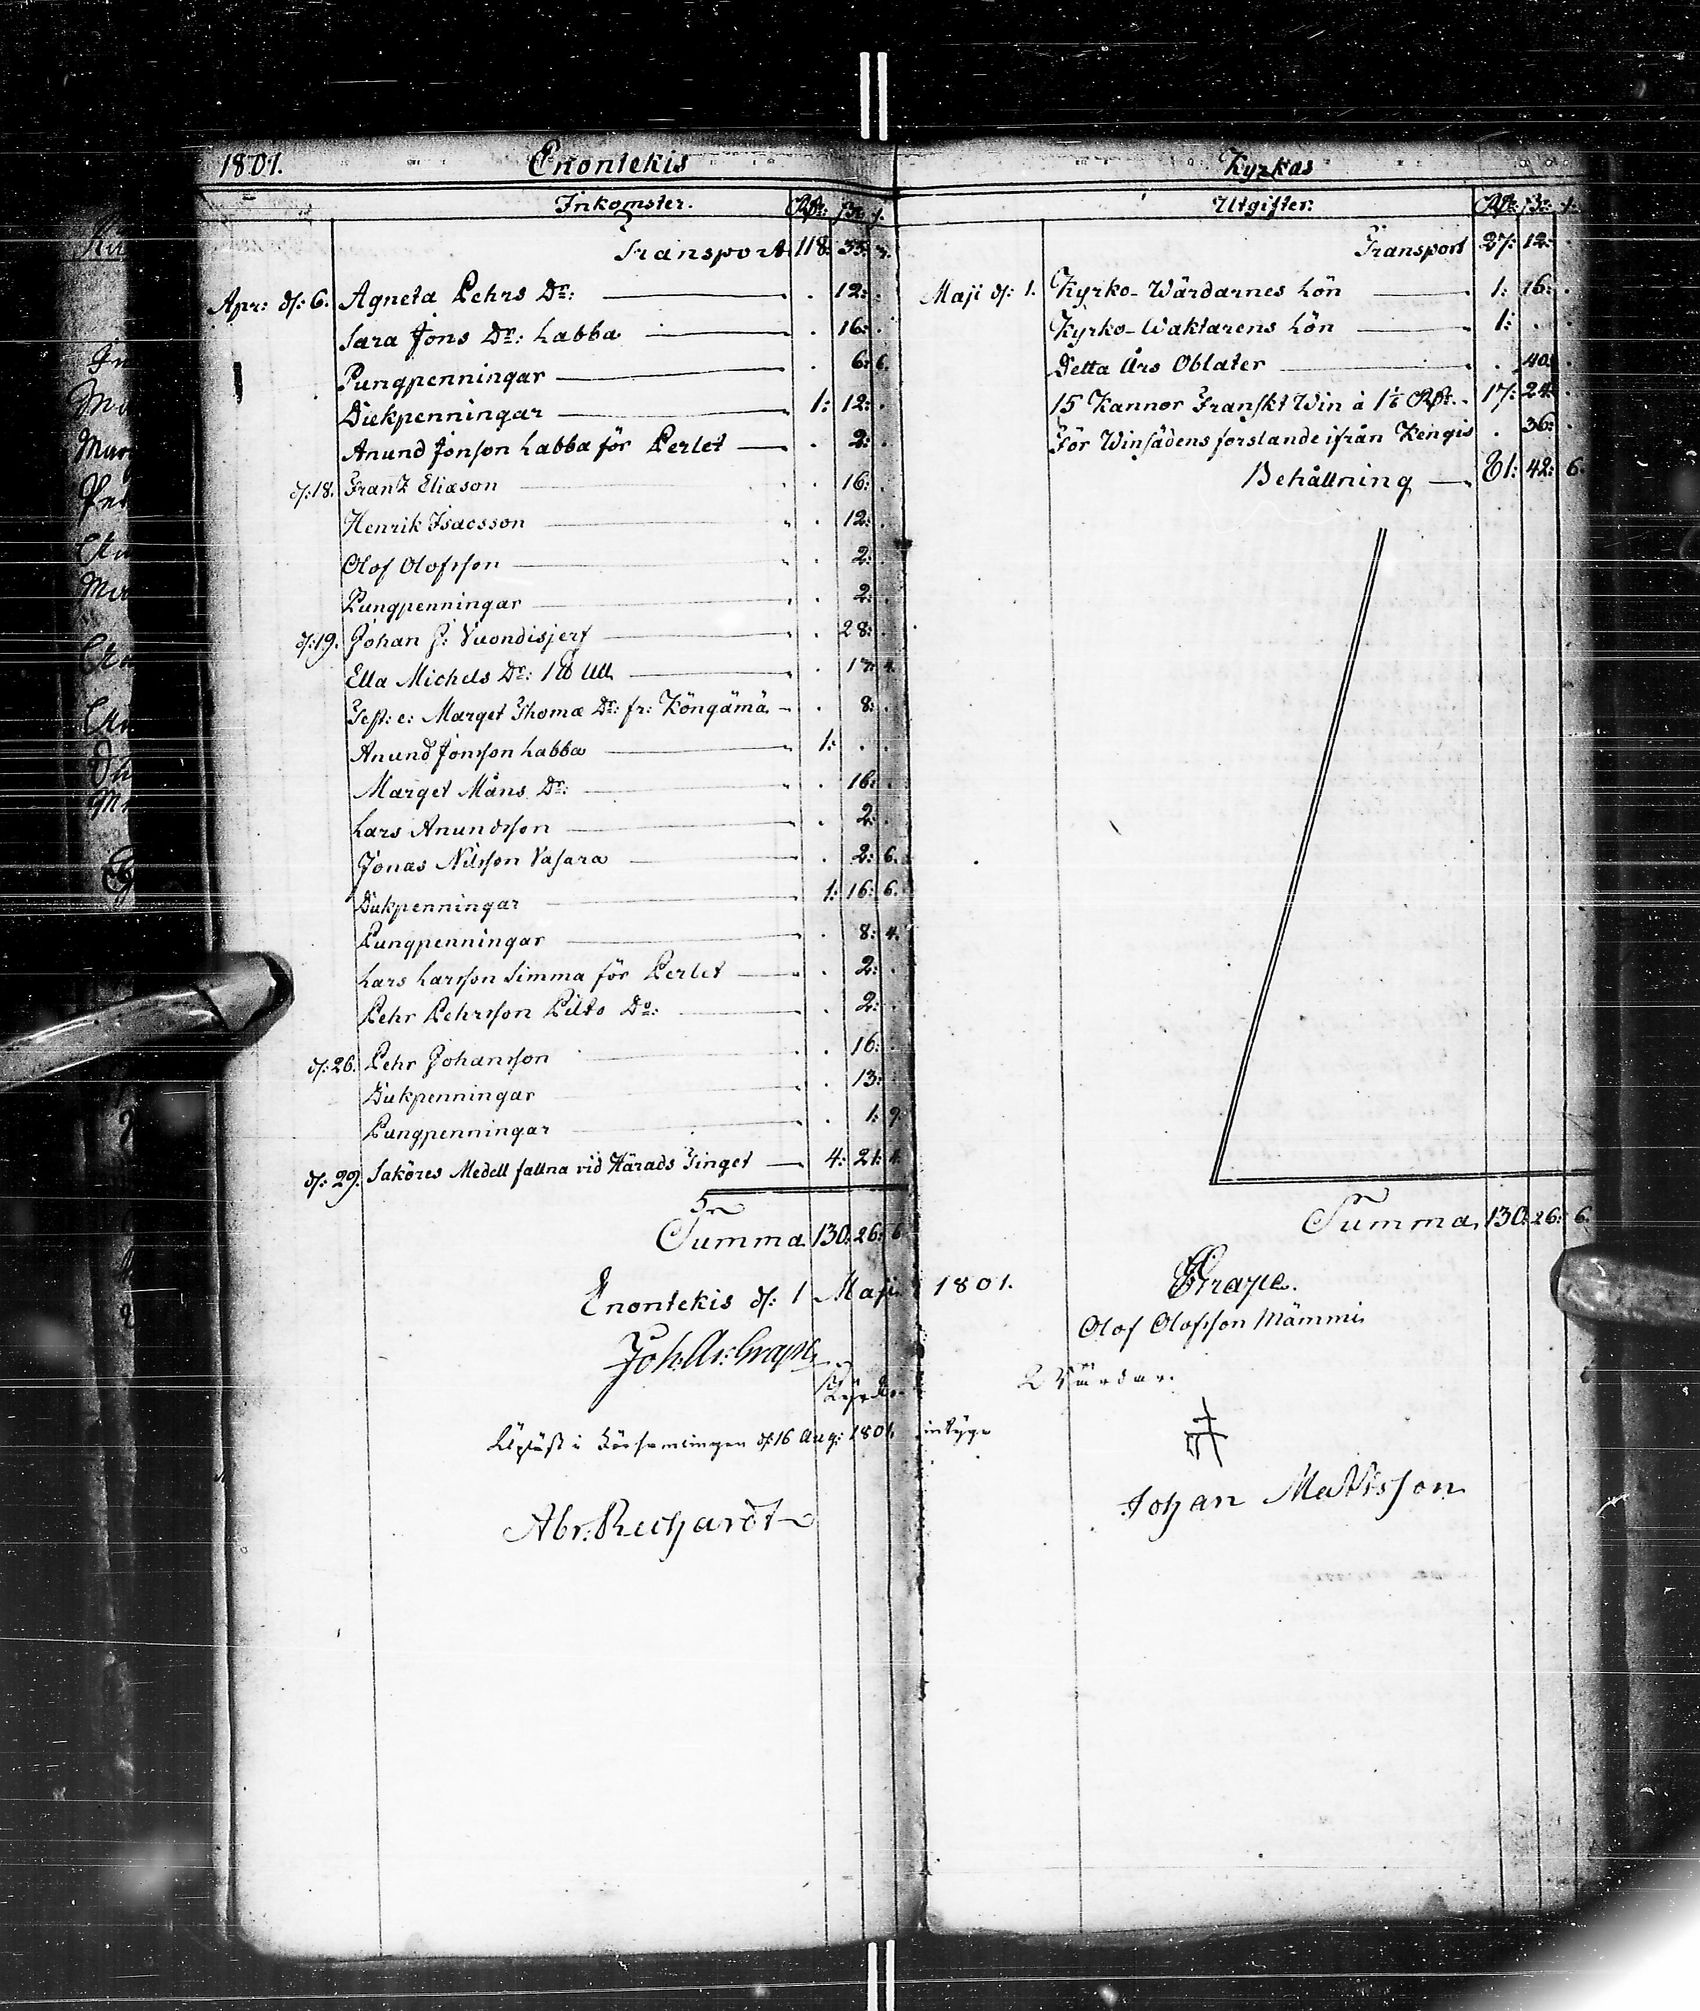 1801. Enontekis
Inkomster. Rdr: ß: r.
Transport 118: 35: 7.
Apr: d: 6. Agneta Pehrs Dr: . 12: .
Sara Jons Dr: Labba . 16: .
Pungpenningar . 6: 6.
Diekpenningar 1: 12: .
Anund Jonson Labba för Perlet . 2: .
d: 18. Frans Eliason . 16: .
Henrik Isacsson . 12: .
Olof Olofsson . 2: .
Pungpenningar . 2: .
d: 19. Johan J: Vuondisjerf . 28: .
Ella Michels Dr: 1 ℔ Ull . 17: 4.
Test: e: Marget Thomæ Dr: fr: Köngämä . 8: .
Anund Jonsson Labba 1: . .
Marget Måns Dr: . 16: .
Lars Anundsson . 2: .
Jonas Nilsson Vasara . 2: 6.
Dukpenningar 1: 16: 6.
Pungpenningar . 8: 4.
Lars Larsson Simma för Perlet . 2: .
Pehr Pehrsson Pilto Do: . 2: .
d: 26. Pehr Johansson . 16: .
Dukpenningar . 13: .
Pungpenningar . 1: 9.
d: 29. Saköres Medell fallna vid Härads Tinget 4: 21: 4.
Summa 130: 26: 6.
Enontekis d: 1 Maji 1801.
Joh: Ad: Grape
Kyrko
Upläst i Församlingen d: 16 Aug: 1801. intyga
Abr. Rechardt
Kyrkas
Utgifter: Rdr: ß: r.
Transport 27: 12: .
Maji d: 1. Kyrko-Wärdarnes Lön 1: 16: .
Kyrko-Waktarens Lön 1: . .
Detta Års Oblater . 40: .
15 Kannor Franskt Win à 1 1/6 Rdr. 17: 24: .
För Winsädens forslande ifrån Kengis . 36: .
Behållning 81: 42: 6.
Summa 130: 26: 6.
Grape.
Olof Olofsson Mämmi
Värdar.
Johan Mattsson